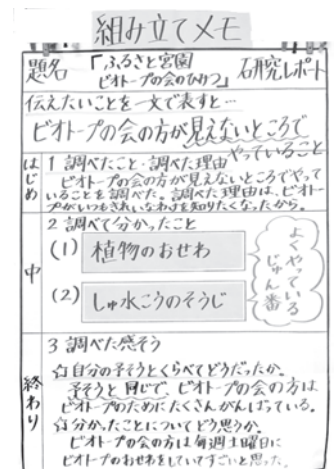 組み立てメモ
題名 「ふるさと宮園 ビオトープの会のひみつ」 研究レポート
伝えたいことを一文で表すと…
ビオトープの会の方が見えないところで
やっていること
はじめ
1 調べたこと・調べた理由
ビオトープの会の方が見えないところでやって
いることを調べた。調べた理由は、ビオトー
プがいつもきれいなわけを知りたくなったから。
中
2 調べて分かったこと
(1) 植物のおせわ
(2) しゅ水こうのそうじ
よくやっている
じゅん番
終わり
3 調べた感そう
☆自分の予そうとくらべてどうだったか。
予そうと同じで、ビオトープの会の方は
ビオトープのためにたくさんがんばっている。
☆分かったことについてどう思うか。
ビオトープの会の方は毎週土曜日に
ビオトープのおせわをしていてすごいと思った。